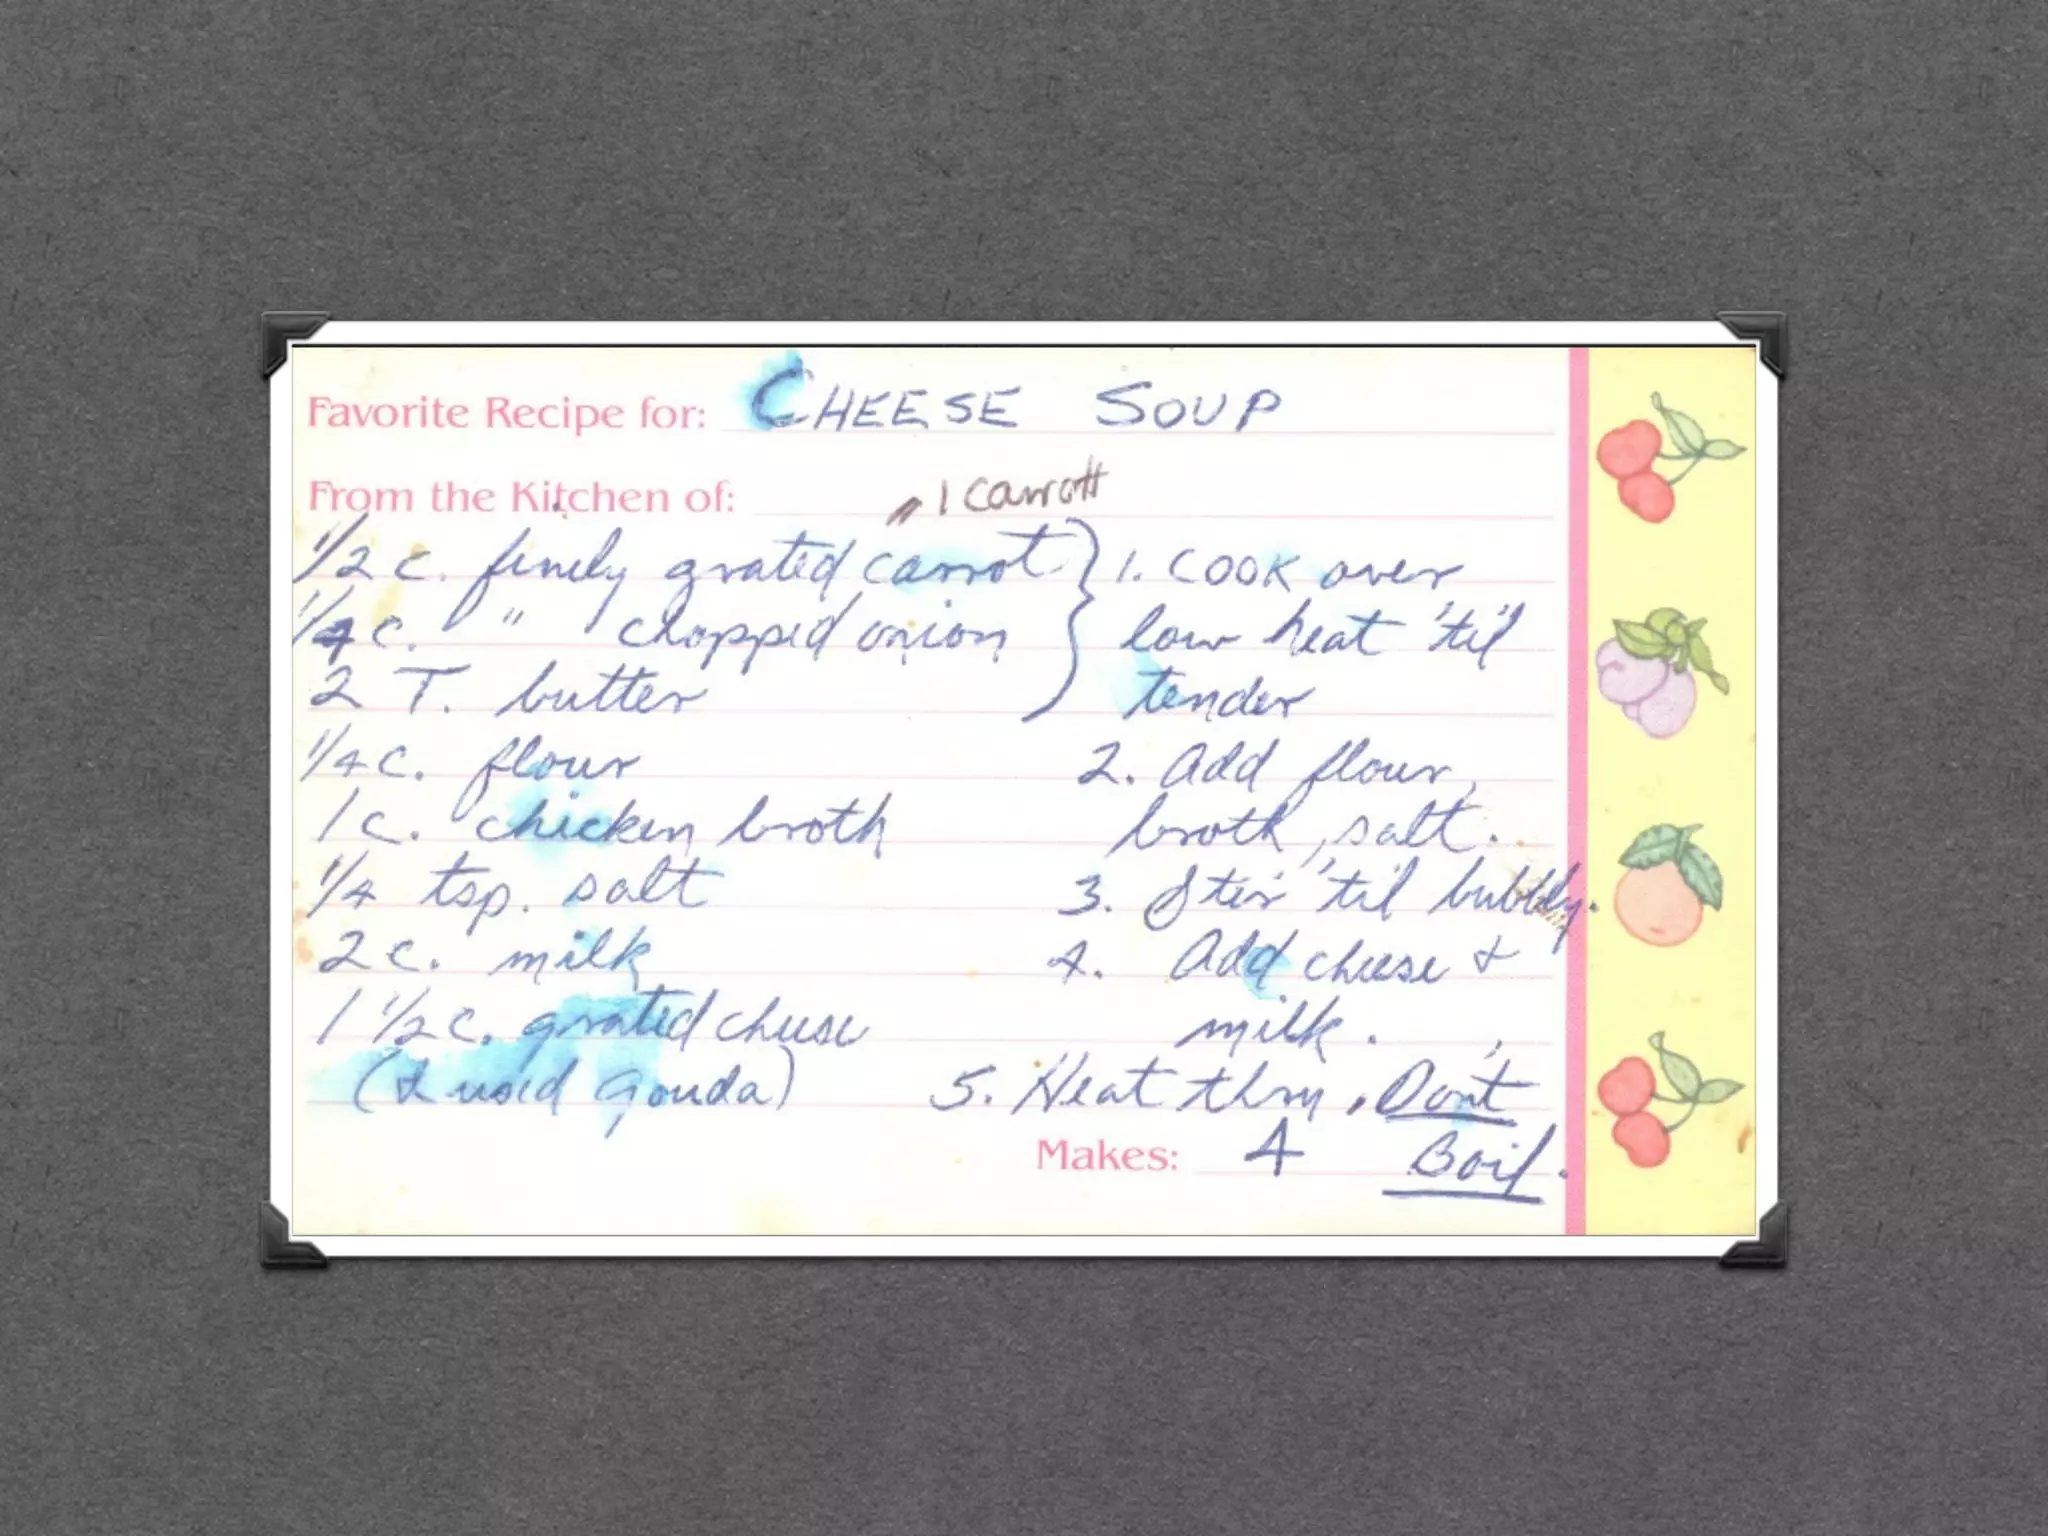 Favorite Recipe for: CHEESE SOUP
From the Kitchen of:
" 1 carrott
1/2 c. finely grated carrot
1/4 c. " chopped onion
2 T. butter
1/4 c. flour
1 c. chicken broth
1/4 tsp. salt
2 c. milk
1 1/2 c. grated cheese
(I used gouda)
1. COOK over
low heat 'til
tender
2. Add flour,
broth, salt.
3. Stir 'til bubbly.
4. Add cheese &
milk.
5. Heat thru. Don't
Boil.
Makes: 4